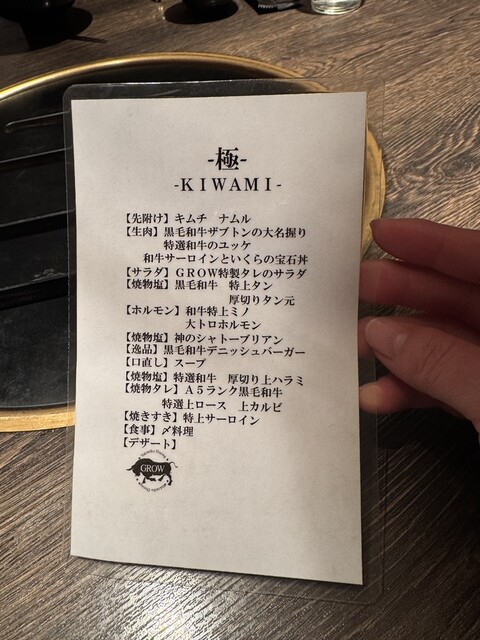 -極-
-KIWAMI-
【先附け】キムチ　ナムル
【生肉】黒毛和牛ザブトンの大名握り
特選和牛のユッケ
和牛サーロインといくらの宝石丼
【サラダ】GROW特製タレのサラダ
【焼物塩】黒毛和牛　特上タン
厚切りタン元
【ホルモン】和牛特上ミノ
大トロホルモン
【焼物塩】神のシャトーブリアン
【逸品】黒毛和牛デニッシュバーガー
【口直し】スープ
【焼物塩】特選和牛　厚切り上ハラミ
【焼物タレ】A5ランク黒毛和牛
特選上ロース　上カルビ
【焼きすき】特上サーロイン
【食事】〆料理
【デザート】
GROW